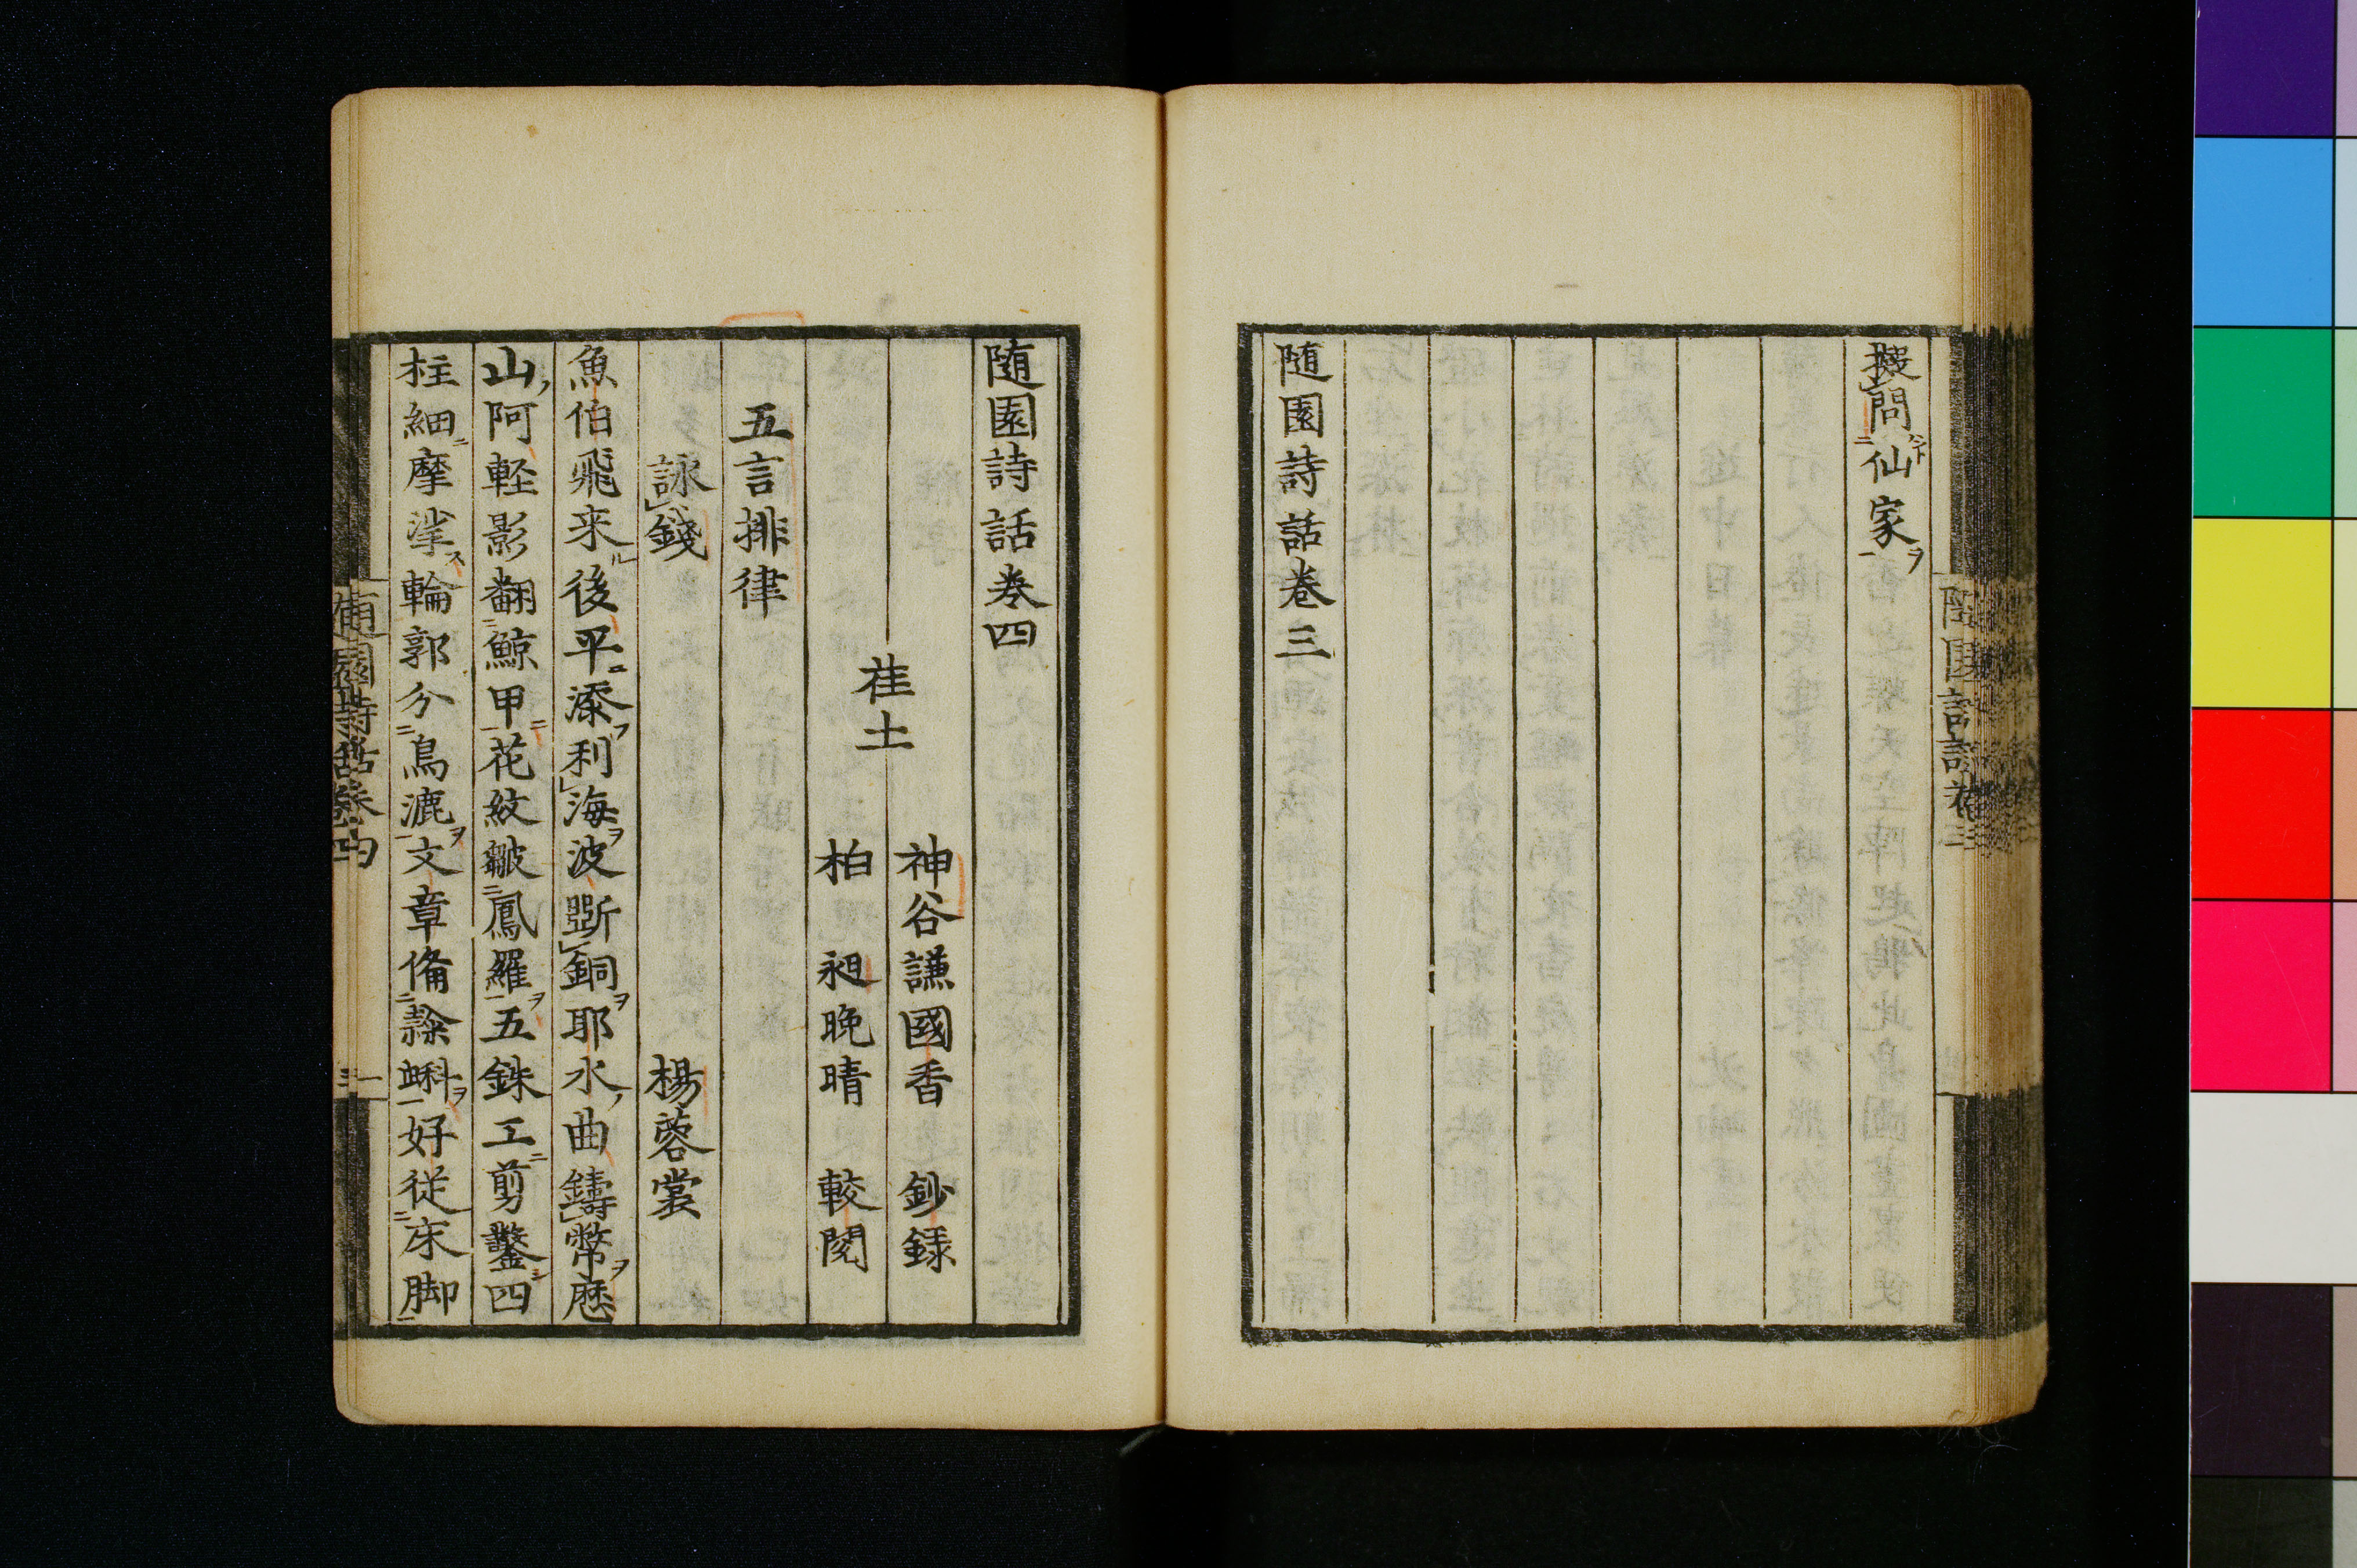 擬問仙家
随園詩話卷三
随園詩話卷四
神谷謙國香　鈔録
佳土
柏　昶晩晴　較閲
五言排律
詠錢　楊蓉裳
魚伯飛来後平添利海波斲銅耶水曲鑄幣歴
山阿軽影翻鯨甲花紋皺鳳羅五銖工剪鑿四
柱細摩挲輪郭分鳥漉文章備隸蝌好従床脚
随園詩話卷四